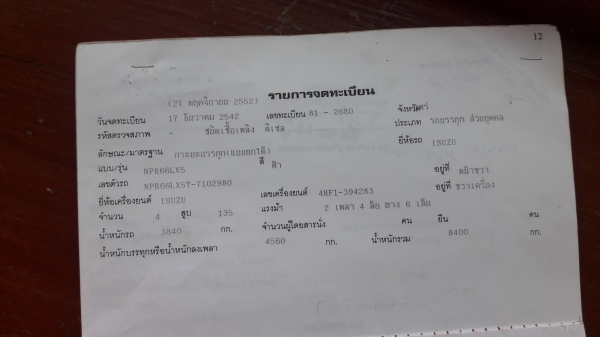 12
(27 พฤศจิกายน 2552) รายการจดทะเบียน
วันจดทะเบียน 17 ธันวาคม 2542 เลขทะเบียน 81 - 2680 จังหวัด
รหัสตรวจสภาพ - ชนิดเชื้อเพลิง ดีเซล ประเภท รถบรรทุก ส่วนบุคคล
ลักษณะ/มาตรฐาน กระบะบรรทุก(แบบยกได้) ยี่ห้อรถ ISUZU
แบบ/รุ่น NPR66LX5 สี ฟ้า
เลขตัวรถ NPR66LX57-7102980 อยู่ที่
ยี่ห้อเครื่องยนต์ ISUZU เลขเครื่องยนต์ 4HF1-394283 อยู่ที่ ขวาเครื่อง
จำนวน 4 สูบ 135 แรงม้า 2 เพลา 4 ล้อ ยาง 6 เส้น
น้ำหนักรถ 3840 กก. จำนวนผู้โดยสารนั่ง คน ยืน คน
น้ำหนักบรรทุกหรือน้ำหนักลงเพลา 4560 กก. น้ำหนักรวม 8400 กก.